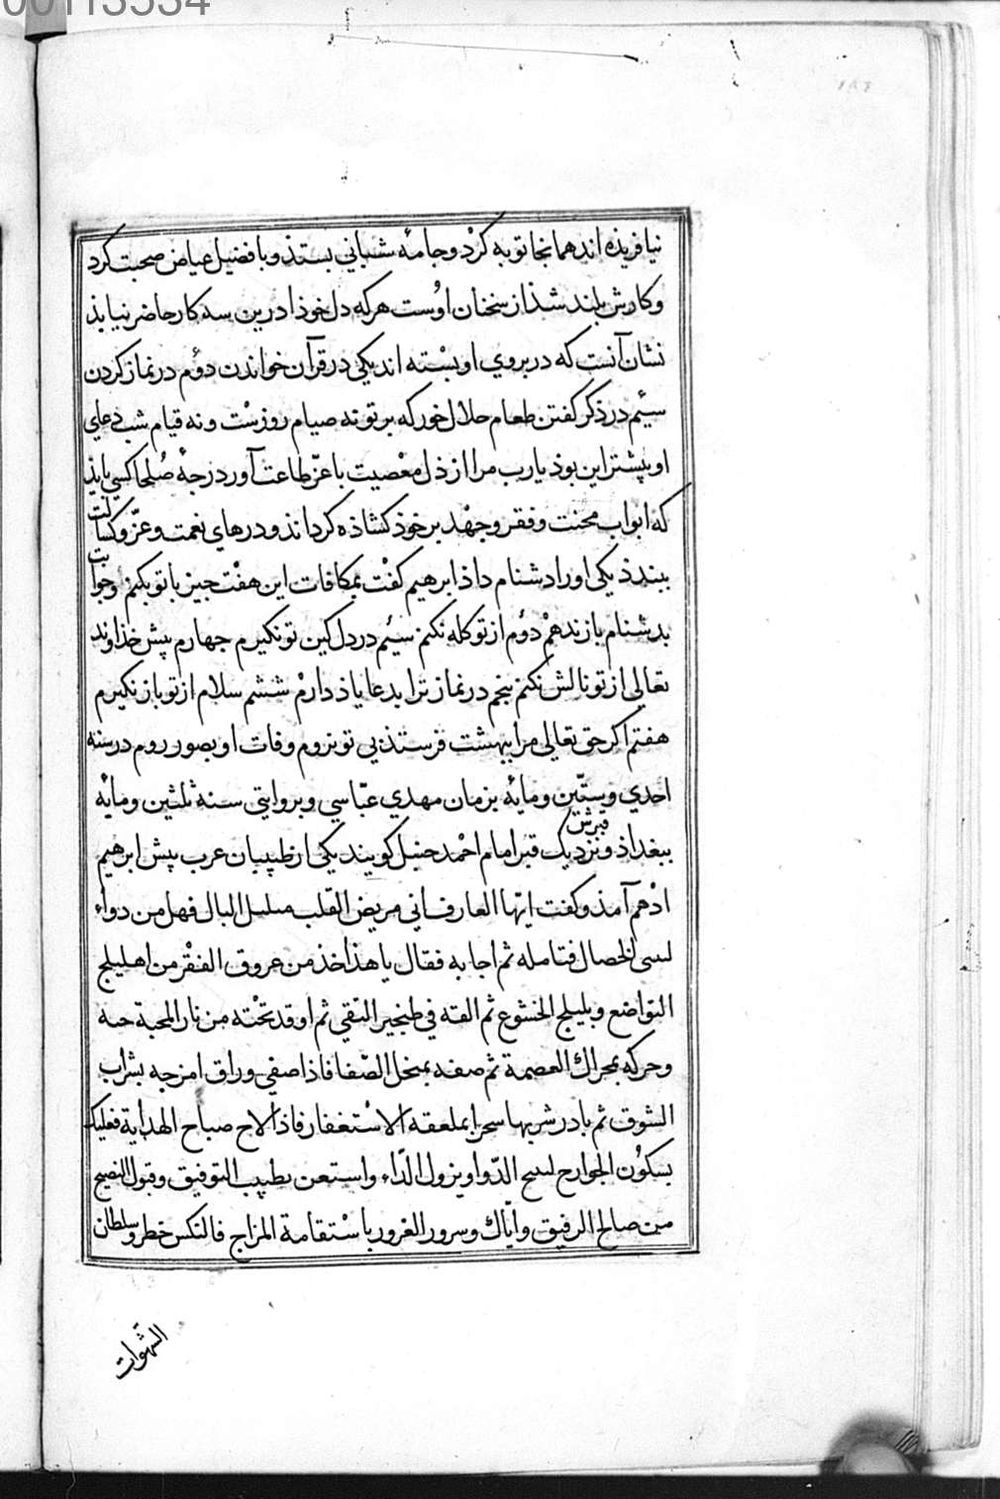 00113534
نیافریده اند همانجا توبه کرْد و جامهٔ شبانی بستذ و با فضیل عیاض صحبت کرد
و کارش بلند شذ از سخنان اوُست هرکه دل خوذ ا درین سه کار حاضر نیابذ
نشان آنست که در بروی او بسْته اند یکی در قرآن خواندن دوُم در نماز کردن
سیُم در ذکر کفتن طعام حلال خور که بر تو نه صیام روزسْت و نه قیام شب دعای
او پیشتر این بوذ یارب مرا از ذل معْصیت با عزّ طاعت آور درجهٔ صُلحا کسی یابذ
که ابواب محنت و فقر و جهْد بر خوذ کشاذه کرداند و درهای نعمت و عزّ و کسالت
ببندذ یکی او را دشنام داذ ابرهیم کفْت بمکافات این هفْت جیز با تو بکنم جواب
بدشنام باز ندهمْ دوُم از تو کله نکنم سیُم در دل کین تو نکیرم جهارم پیش خذاوند
تعالی از تو نالش نکنم پنجم در نماز ترا بدعا یاذ دارمْ ششم سلام از تو باز نکیرم
هفتم اکر حق تعالی مرا ببهشت فرستذ بی تو نروم وفات او بصور روم در سنه
احدی و ستّین و مایهٔ بزمان مهدی عبّاسی و بروایتی سنه ثلثین و مایهٔ
قبرش
ببغداذ و نزدیک قبر امام احْمد حنبل کویند یکی از طبیبان عرب پیش ابرهیم
ادْهم آمذ و کفت ایّها العارف انی مریض القلب مبلبل البال فهل من دواء
لسی الخصال فتامله ثم اجابه فقال یا هذا خذ من عروق الفقْر من اهلیلج
التواضع و بلیلج الخشوع ثم القه فی طنجیر التقی ثم اوقد تحْته من نار المحبة حبه
و حرکه بمحراك العصمة ثم صفه بمنخل الصّفا فاذا صفی و راق امزجه بشراب
الشوق ثم بادر شربها سحرا بملعقة الاسْتغفار فاذا لاح صباح الهدایة فعلیك
بسکوُن الجوارح لسیح الدّوا و یزول الدّاء و استعن بطبیب التوفیق و قبول النصیح
من صالح الرفیق و ایّاك و سرور الغرور باسْتقامة المزاج فالنکس خطر و سلطان
الشّهوات